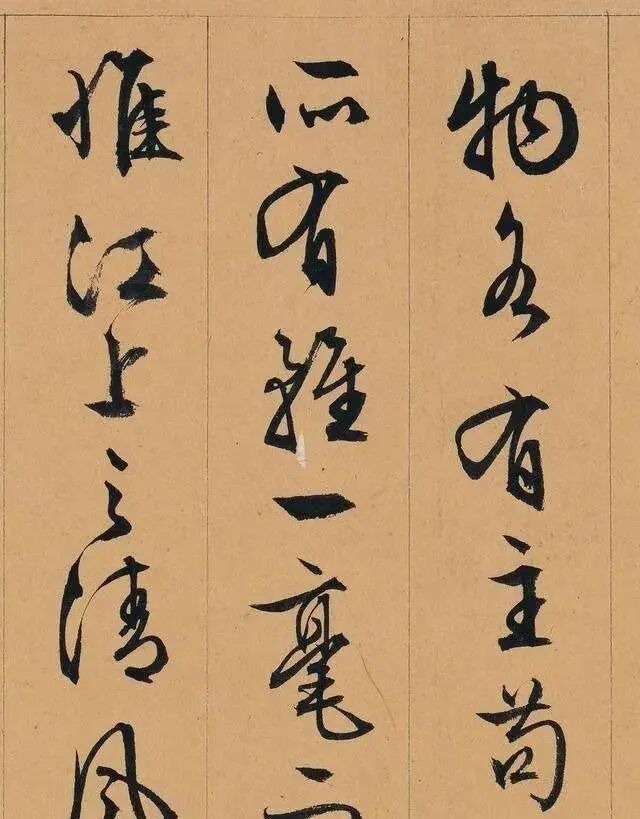 物各有主苟
所有雖一毫而
惟江上之清風